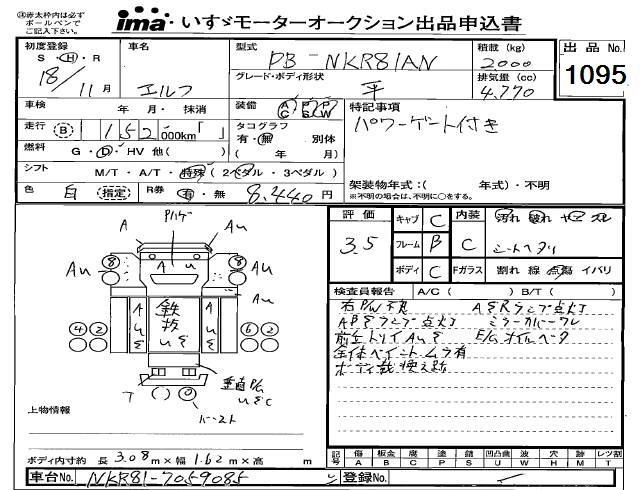 ㊟赤太枠内は必ず
ボールペンで
ご記入下さい。
ima いすゞモーターオークション出品申込書
初度登録 車名 型式 積載 (kg) 出品No.
S・H・R エルフ PB-NKR81AN 2000 1095
18/11月 グレード・ボディ形状 平 排気量 (cc) 4.770
車検 年 月・ 抹消 装備 AC PS PW 特記事項
走行 (B) 1 152,000km「 」 タコグラフ 有・無 別体 パワーゲート付き
燃料 G・D・HV 他( ) ( 年 月)
シフト M/T・A/T・特殊 ( 2ペダル・3ペダル ) 架装物年式:( 年式)・不明
色 白 (指定) R券 有・無 8.440円 ※不明の場合は、不明に○をする。
評価 3.5 キャブ C 内装 C 汚れ 破れ ヤニ スレ
フレーム B シートヘタリ
ボディ C Fガラス 割れ 線 点傷 イバリ
検査員報告 A/C ( ) B/T ( )
右P/W不良 ASRランプ点灯
ABSランプ点灯 ミラーカバーワレ
全体ペイントムラ有
ボディ載換え跡
Pハゲ
A Au
8 8
Au AuS Au
鉄板
4 2 6 2
垂直P/G
T バースト
上物情報
ボディ内寸約 長 3.08m×幅 1.62m×高 m
記号 傷 A 板金 B 腐 C 塗 P サビ S 凹凸曲 U 波 W 穴 H 跡 M レツ割 T
車台No. NKR81-7059085 登録No.